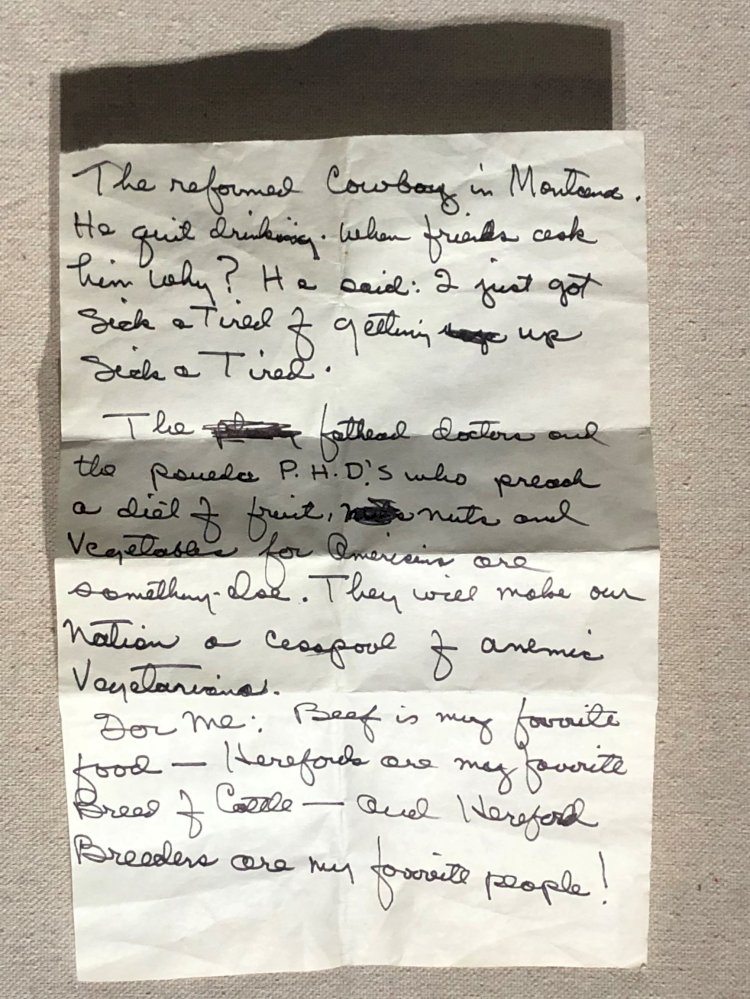 The reformed Cowboy in Montana.
He quit drinking. When friends ask
him why? He said: I just got
Sick & Tired of getting up
Sick & Tired.
The fathead doctors and
the pseudo P.H.D.'s who preach
a diet of fruit, nuts and
Vegetables for Americans are
something-else. They will make our
Nation a cesspool of anemic
Vegetarians.
For Me: Beef is my favorite
food — Herefords are my favorite
Breed of Cattle — and Hereford
Breeders are my favorite people!